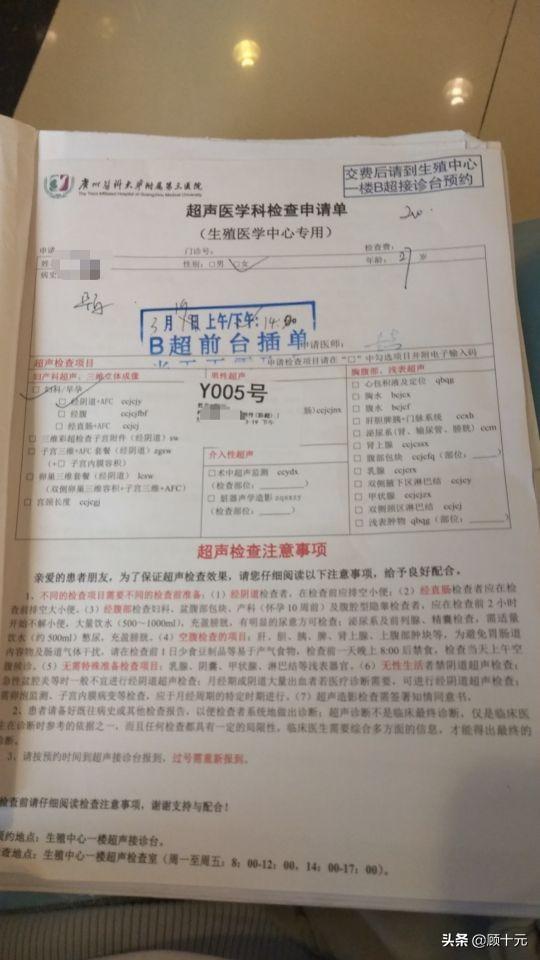 广州医科大学附属第三医院
The Third Affiliated Hospital of Guangzhou Medical University
交费后请到生殖中心
一楼B超接诊台预约
超声医学科检查申请单
（生殖医学中心专用）
申请
门诊号:
检查费:
姓名
性别: □男 □女
年龄: 27 岁
病史
3月19日 上午/下午: 14:00
B超前台插单
申请医师:
超声检查项目
申请检查项目请在“□”中勾选项目并附电子输入码
妇产科超声、三维立体成像
□ 妇科/早孕
□ 经阴道+AFC ccjcjy
□ 经腹 ccjcjfbf
□ 经直肠+AFC ccjcj
□ 三维彩超检查子宫附件（经阴道）sw
□ 子宫三维+AFC套餐（经阴道）zgsw
（+□ 子宫内膜容积）
□ 卵巢三维套餐（经阴道） lcsw
（双侧卵巢三维容积+子宫三维+AFC）
□ 宫颈长度 ccjcgj
男性超声
Y005号
肠) ccjcjnx
3-19 下午
介入性超声
□术中超声监测 ccydx
（检查部位: ）
□ 脏器声学造影 zqsxzy
（检查部位: ）
胸腹部、浅表超声
□ 心包积液及定位 qbqg
□ 胸水 bcjcx
□ 腹水 bcjcf
□ 肝胆脾胰+门脉系统 ccxh
□ 泌尿系(肾、输尿管、膀胱) ccm
□ 肾上腺 ccjcssx
□ 腹部包块 ccjcfq (部位: )
□ 乳腺 ccjcrx
□ 双侧腋下区淋巴结 ccjcy
□ 甲状腺 ccjcjzx
□ 双侧颈区淋巴结 ccjcj
□ 浅表肿物 qbqg (部位: )
超声检查注意事项
亲爱的患者朋友，为了保证超声检查效果，请您仔细阅读以下注意事项，给予良好配合。
1、不同的检查项目需要不同的检查前准备：（1）经阴道检查者，在检查前应排空小便；（2）经直肠检查者应在检
查前排空大小便。（3）经腹部检查妇科、盆腹部包块、产科（怀孕10周前）及腹腔型隐睾检查者，应在检查前2小时
开始不解小便，大量饮水（500～1000ml），充盈膀胱，有明显的尿意方可检查；泌尿系及前列腺、精囊检查，需适量
饮水（约500ml）憋尿，充盈膀胱。（4）空腹检查的项目：肝、胆、胰、脾、肾上腺、上腹部肿块等，为避免胃肠道
内容物及肠道气体干扰，请在检查前1日少食豆制品等易于产气食物，检查前一天晚上8:00后禁食，检查当天上午空
腹候诊。（5）无需特殊准备检查项目：乳腺、阴囊、甲状腺、淋巴结等浅表器官。（6）无性生活者禁阴道超声检查；
急性盆腔炎等时一般不宜进行经阴道超声检查；月经期或阴道大量出血者若医疗诊断需要，可进行经阴道超声检查；
需卵泡监测、子宫内膜病变等检查，应于月经周期的特定时期进行。（7）超声造影检查需签署知情同意书。
2、患者请备好既往病史或其他检查报告，以便检查者系统地做出诊断；超声诊断不是临床最终诊断，仅是临床医
生在诊断时参考的依据之一，而且任何检查都具有一定的局限性，临床医生需要综合多方面的信息，才能得出最终的
诊断。
3、请按预约时间到超声接诊台报到，过号需重新报到。
检查前请仔细阅读检查注意事项，谢谢支持与配合！
预约地点：生殖中心一楼超声接诊台。
查地点：生殖中心一楼超声检查室（周一至周五：8：00-12：00，14：00-17：00）。
头条 @顾十元